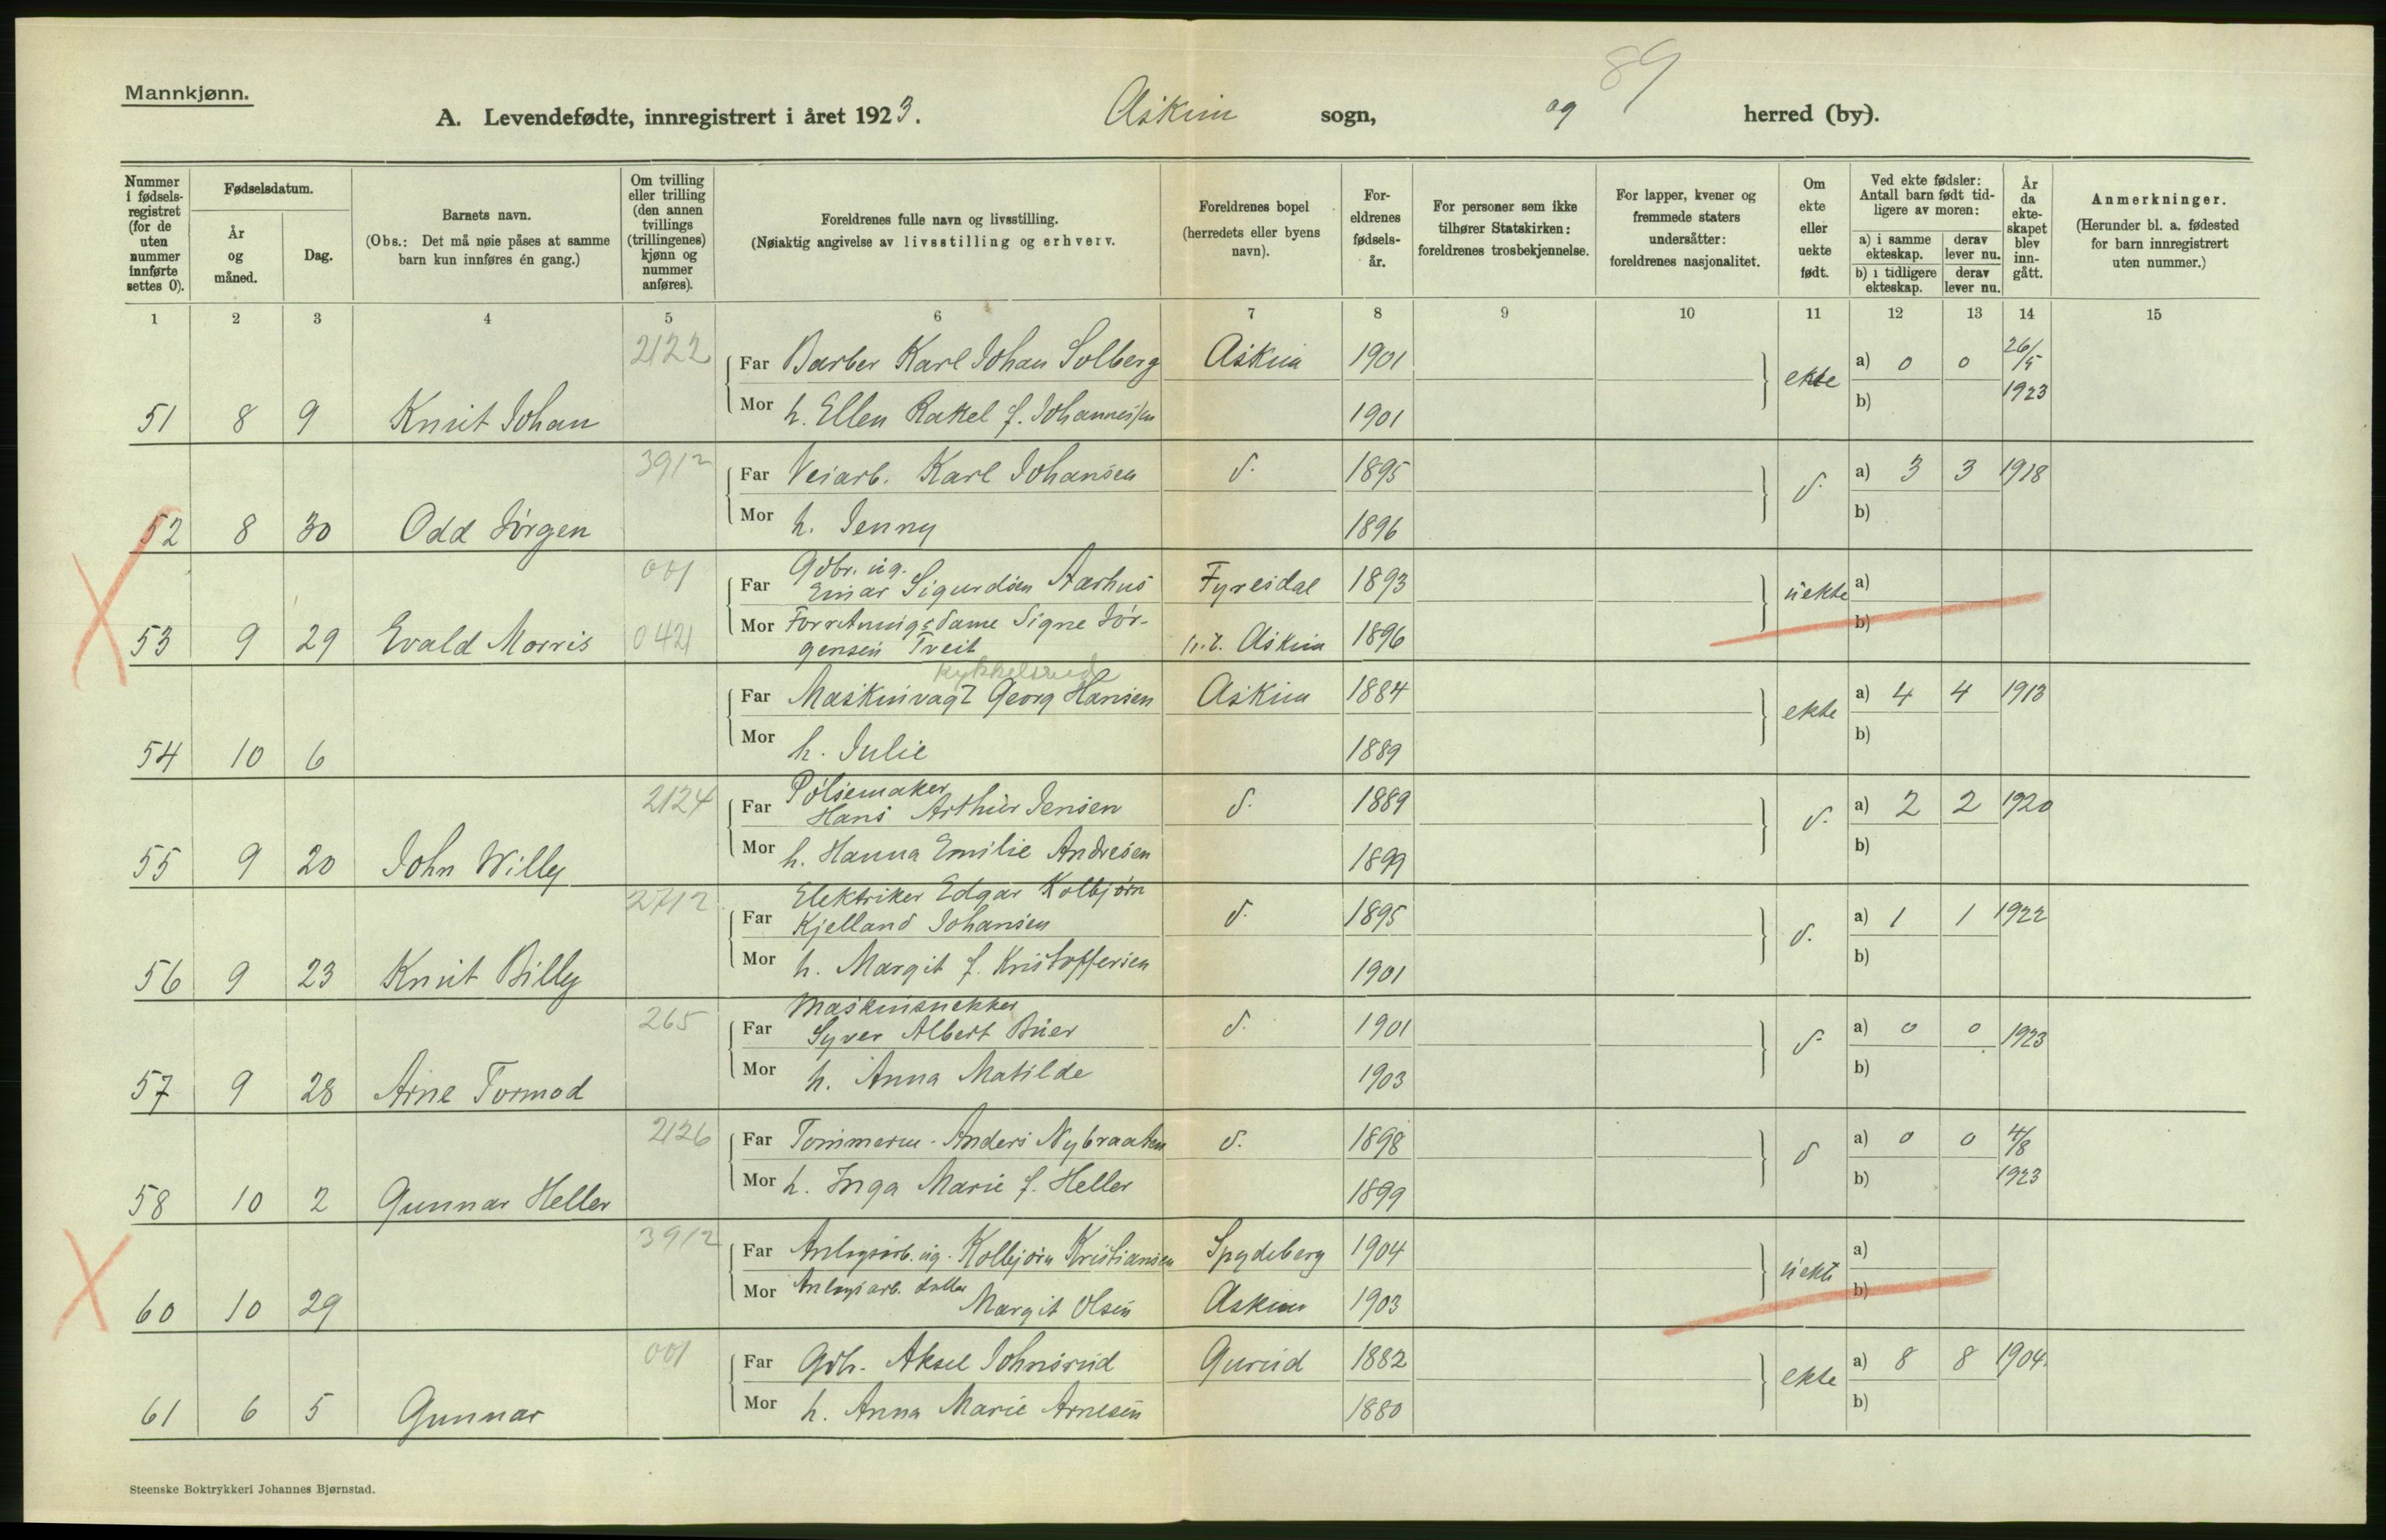 89
Mannkjønn.
A. Levendefødte, innregistrert i året 1923. Askim sogn, og herred (by).
Nummer i fødsels-registret (for de uten nummer innførte settes 0).
Fødselsdatum.
År og måned.
Dag.
Barnets navn.
(Obs.: Det må nøie påses at samme barn kun innføres én gang.)
Om tvilling eller trilling (den annen tvillings (trillingenes) kjønn og nummer anføres).
Foreldrenes fulle navn og livsstilling.
(Nøiaktig angivelse av livsstilling og erhverv.
Foreldrenes bopel (herredets eller byens navn).
For-eldrenes fødsels-år.
For personer sem ikke tilhører Statskirken: foreldrenes trosbekjennelse.
For lapper, kvener og fremmede staters undersåtter: foreldrenes nasjonalitet.
Om ekte eller uekte født.
Ved ekte fødsler: Antall barn født tid-ligere av moren:
a) i samme ekteskap.
derav lever nu.
b) i tidligere ekteskap.
derav lever nu.
År da ekte-skapet blev inn-gått.
Anmerkninger.
(Herunder bl. a. fødested for barn innregistrert uten nummer.)
1 2 3 4 5 6 7 8 9 10 11 12 13 14 15
2122 Far Barber Karl Johan Solberg Askim 1901 ekte a) 0 0 26/5 1923
51 8 9 Knut Johan Mor h. Ellen Rakel f. Johannessen 1901 b)
3912 Far Veiarb. Karl Johansen d. 1895 d. a) 3 3 1918
52 8 30 Odd Jörgen Mor h. Jenny 1896 b)
001 Far Gdbr. ug. Einar Sigurdsen Aarhus Fyresdal 1893 uekte a)
53 9 29 Evald Morris 042 Mor Forretningsdame Signe Jör-
gensen Tveit n.t. Askim 1896 b)
Kykkelsrud
Far Maskinvagt Georg Hansen Askim 1884 ekte a) 4 4 1913
54 10 6 Mor h. Julie 1889 b)
2124 Far Pölsemaker Hans Arthur Jensen d. 1889 d. a) 2 2 1920
55 9 20 John Willy Mor h. Hanna Emilie Andresen 1899 b)
2712 Far Elektriker Edgar Kolbjörn
Kjelland Johansen d. 1895 d. a) 1 1 1922
56 9 23 Knut Billy Mor h. Margit f. Kristoffersen 1901 b)
265 Far Maskinsnekker
Syver Albert Buer d. 1901 d. a) 0 0 1923
57 9 28 Arne Tormod Mor h. Anna Matilde 1903 b)
2126 Far Tömmerm. Anders Nybraaten d. 1898 d a) 0 0 4/8 1923
58 10 2 Gunnar Heller Mor h. Inga Marie f. Heller 1899 b)
3912 Far Anlegsarb. ug. Kolbjörn Kristiansen Spydeberg 1904 uekte a)
60 10 29 Mor Anlegsarb. datter Margit Olsen Askim 1903 b)
001 Far Gdb. Aksel Johnsrud Gurud 1882 ekte a) 8 8 1904.
61 6 5 Gunnar Mor h. Anna Marie Arnesen 1880 b)
Steenske Boktrykkeri Johannes Bjørnstad.